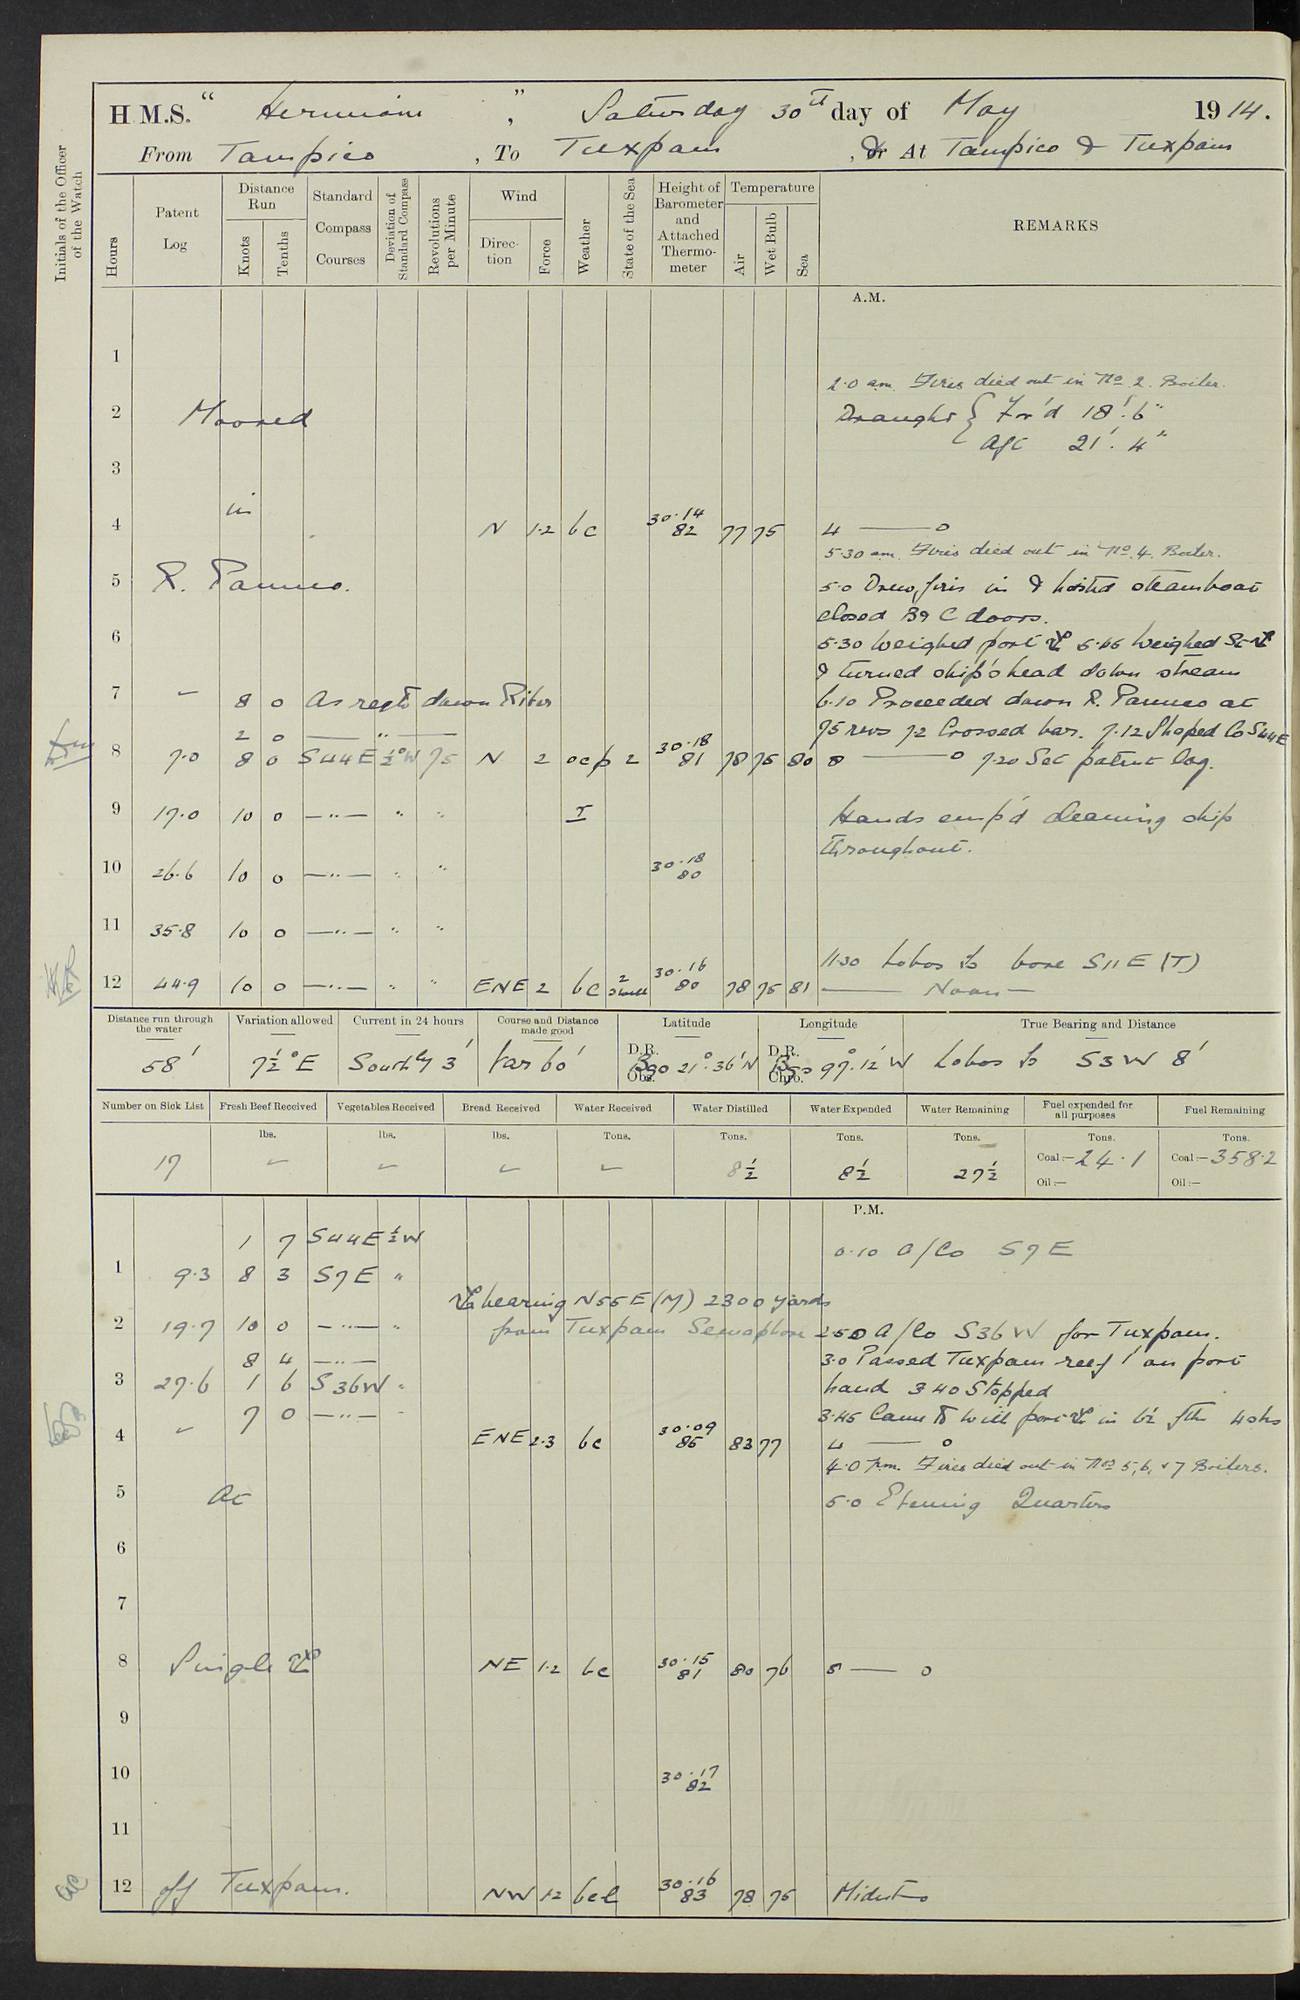 H.M.S. "Hermione", Saturday 30th day of May 1914.
From Tampico, To Tuxpam, or At Tampico & Tuxpam
Initials of the Officer of the Watch
Hours
Patent Log
Distance Run
Knots
Tenths
Standard Compass Courses
Deviation of Standard Compass
Revolutions per Minute
Wind
Direction
Force
Weather
State of the Sea
Height of Barometer and Attached Thermometer
Temperature
Air
Wet Bulb
Sea
REMARKS
A.M.
1
2.0 am. Fires died out in No 2. Boiler.
2 Moored Draught { For'd 18'.6"
Aft 21'. 4"
3
in
4 N 1.2 bc 30.14 82 77 75 4 — 0
5.30 am. Fires died out in No. 4. Boiler.
5 R. Panuco. 5.0 Drew fires in & hoisted steamboat
closed B & C doors.
6 5.30 Weighed port ⚓ 5.45 Weighed St ⚓
& turned ship's head down stream
7 ✓ 8 0 As reqte down River 6.10 Proceeded down R. Panuco at
2 0 — " — 75 revs 72 Crossed bar. 7.12 Shaped Co S44E
8 7.0 8 0 S44E ½°W 75 N 2 ocp 2 30.18 81 78 75 80 8 — 0 7.20 Set patent log.
9 17.0 10 0 — " — " " T Hands emp'd cleaning ship
throughout.
10 26.6 10 0 — " — " " 30.18 80
11 35.8 10 0 — " — " "
11.30 Lobos Is bore S11E (T)
12 44.9 10 0 — " — " " ENE 2 bc 2 swell 30.16 80 78 75 81 — Noon —
Distance run through the water
Variation allowed
Current in 24 hours
Course and Distance made good
Latitude
Longitude
True Bearing and Distance
58' 7½°E South'ly 3' Var 60' D.R. Obs. 21°.36'N D.R. Chro. 97°.12'W Lobos Is S3W 8'
Number on Sick List
Fresh Beef Received
Vegetables Received
Bread Received
Water Received
Water Distilled
Water Expended
Water Remaining
Fuel expended for all purposes
Fuel Remaining
lbs. lbs. lbs. Tons. Tons. Tons. Tons. Tons. Tons.
17 ✓ ✓ ✓ ✓ 8½ 8½ 27½ Coal:—24.1 Coal:—358.2
Oil:— Oil:—
P.M.
1 7 S44E ½W 0.10 A/Co S7E
1 9.3 8 3 S7E "
⚓ bearing N55E (M) 2300 yards
2 19.7 10 0 — " — " from Tuxpam Semaphore 2.50 A/Co S36W for Tuxpam.
8 4 — " — 3.0 Passed Tuxpam reef 1' on port
3 27.6 1 6 S36W " hand 3.40 Stopped
✓ 7 0 — " — " 3.45 Came to with port ⚓ in 6½ fths 4 shs
4 ENE 2.3 bc 30.09 85 83 77 4 — 0
4.0 p.m. Fires died out in Nos 5, 6, & 7 Boilers.
5 At 5.0 Evening Quarters
6
7
8 Single ⚓ NE 1.2 bc 30.15 81 80 76 8 — 0
9
10 30.17 82
11
12 off Tuxpam. NW 1.2 bcl 30.16 83 78 75 Midnt